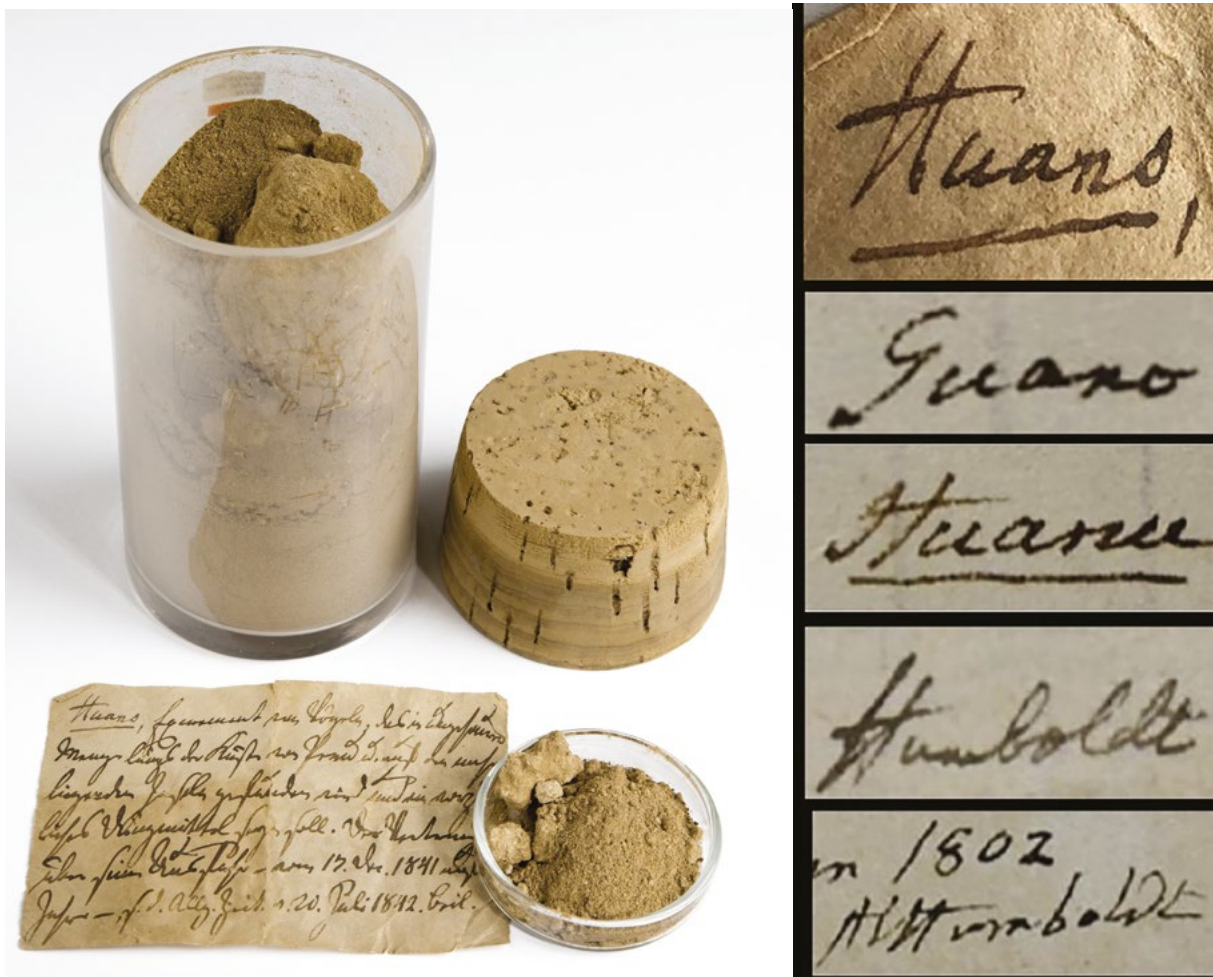 Huano, Excrement von Vögeln, das in ungeheurer
Menge längs der Küste von Peru u. auf den
liegenden Inseln gefunden wird und ein
liches Düngmittel seyn soll. Der
über seine Ausfuhr – vom 17. Dec. 1841
Jahr –, s. d. Allg. Zeit. v. 20. Juli 1842. Beil.
Huano,
Guano
Huanu
Humboldt
n 1802
AlHumboldt